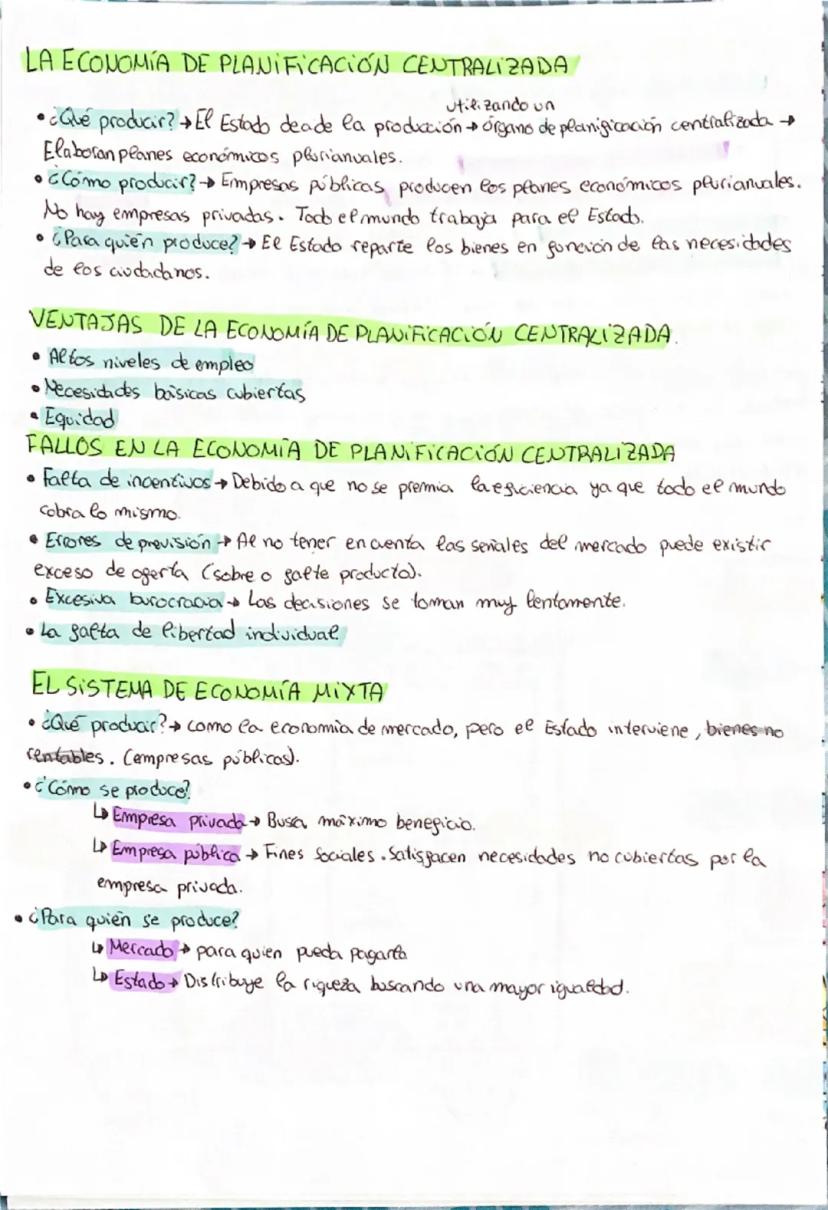 LA ECONOMÍA DE PLANIFICACIÓN CENTRALIZADA
utilizando un
• ¿Qué producir? → El Estado deade la producción → órgano de planificación centralizada →
Elaboran planes económicos plurianuales.
• ¿Cómo producir? → Empresas públicas producen los planes económicos plurianuales.
No hay empresas privadas. Todo el mundo trabaja para el Estado.
• ¿Para quién produce? → El Estado reparte los bienes en función de las necesidades
de los ciudadanos.
VENTAJAS DE LA ECONOMÍA DE PLANIFICACIÓN CENTRALIZADA.
• Altos niveles de empleo
• Necesidades básicas cubiertas
• Equidad
FALLOS EN LA ECONOMÍA DE PLANIFICACIÓN CENTRALIZADA
• Falta de incentivos → Debido a que no se premia la eficiencia ya que todo el mundo
cobra lo mismo.
• Errores de previsión → Al no tener en cuenta las señales del mercado puede existir
exceso de oferta (sobre o falte producto).
• Excesiva burocracia → Las decisiones se toman muy lentamente.
• La falta de libertad individual
EL SISTEMA DE ECONOMÍA MIXTA
• ¿Qué producir? → como la economía de mercado, pero el Estado interviene, bienes no
rentables. (empresas públicas).
• ¿Cómo se produce?
↳ Empresa privada → Busca máximo beneficio.
↳ Empresa pública → Fines sociales. Satisfacen necesidades no cubiertas por la
empresa privada.
• ¿Para quién se produce?
↳ Mercado → para quien pueda pagarlo
↳ Estado → Distribuye la riqueza buscando una mayor igualdad.